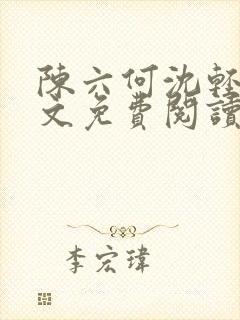 陳六何沈輕
文免費閱讀
李宏瑋